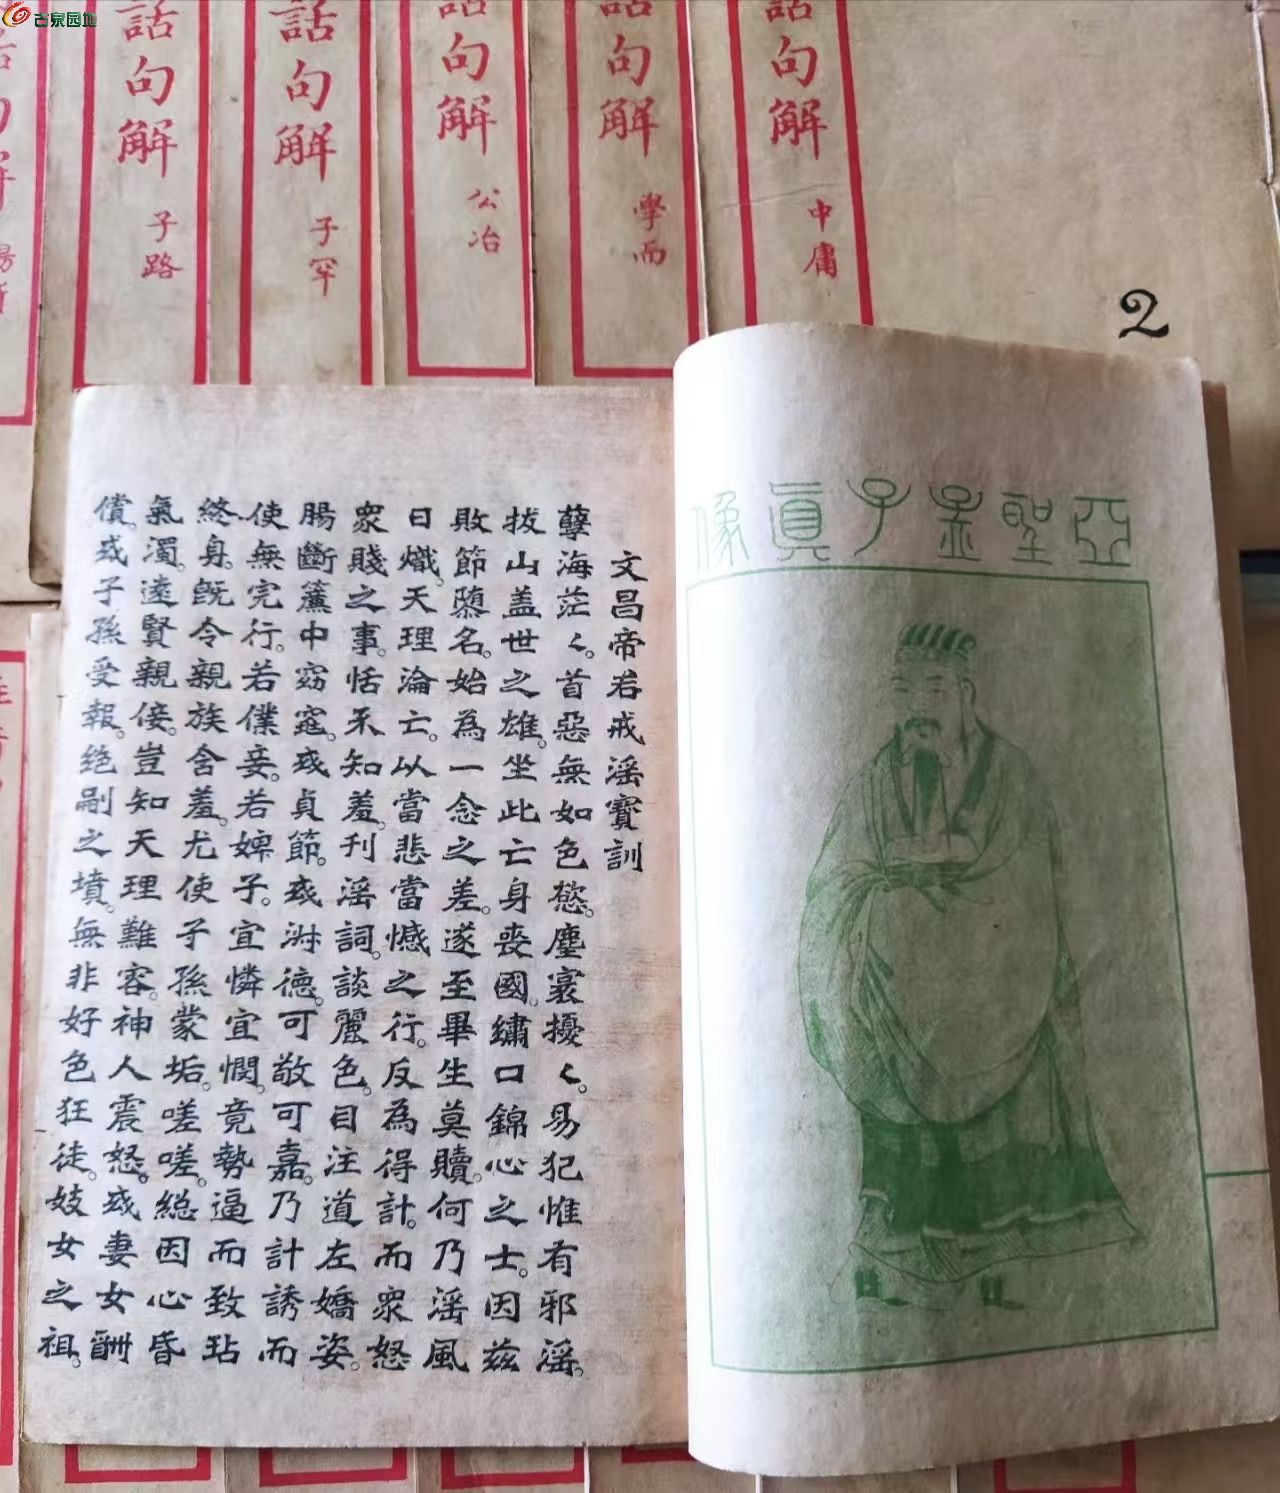 古泉园地
話句解 子路
話句解 子罕
話句解 公冶
話句解 學而
話句解 中庸
2
亞聖孟子眞像
文昌帝君戒淫寳訓
孽海茫く。首惡無如色慾。塵寰擾く。易犯惟有邪淫。
拔山盖世之雄。坐此亡身喪國。繡口錦心之士。因兹
敗節隳名。始為一念之差。遂至畢生莫贖。何乃淫風
日熾。天理淪亡。以當悲當憾之行。反為得計。而衆怒
衆賤之事。恬不知羞。刊淫詞。談麗色。目注道左嬌姿。
腸斷簾中窈窕。或貞節。或淑德。可敬可嘉。乃計誘而
使無完行。若僕妾。若婢子。宜憐宜憫。竟勢逼而致玷
終身。既令親族含羞。尤使子孫蒙垢。嗟嗟。総因心昏
氣濁。遠賢親佞。豈知天理難容。神人震怒。或妻女酬
償。或子孫受報。絶嗣之墳。無非好色狂徒。妓女之祖。